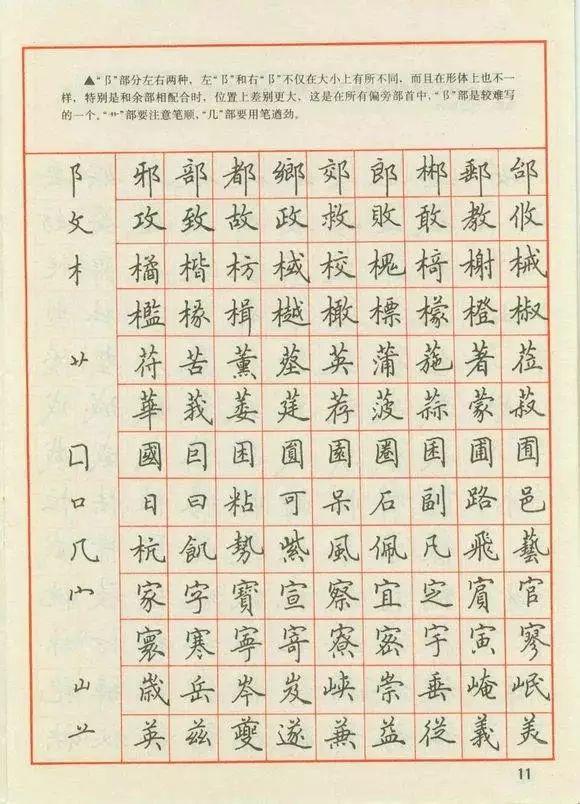 ▲“阝”部分左右两种，左“阝”和右“阝”不仅在大小上有所不同，而且在形体上也不一
样，特别是和余部相配合时，位置上差别更大，这是在所有偏旁部首中，“阝”部是较难写
的一个。“艹”部要注意笔顺，“几”部要用笔遒劲。
阝 邪 部 都 鄉 郊 郎 郴 郵 邰
攵 攻 致 故 政 救 敗 敢 教 攸
木 橘 楷 枋 棫 校 槐 椅 榭 械
檻 椽 楫 樾 橄 標 檬 橙 椒
艹 苻 苦 薰 英 蒲 葹 著 莅
華 莪 蒌 莛 荐 菠 蒜 蒙 菽
囗 國 回 困 圓 園 圈 囷 圃 囿
口 日 曰 粘 可 呆 石 副 路 邑
几 杭 飢 勢 紫 風 佩 凡 飛 藝
宀 家 字 寶 宣 察 宜 定 賓 官
寰 寒 寧 寄 寮 密 宇 寅 寥
山 嵗 岳 岑 岌 峽 崇 垂 崦 岷
英 兹 夔 遂 兼 益 從 義 美
11